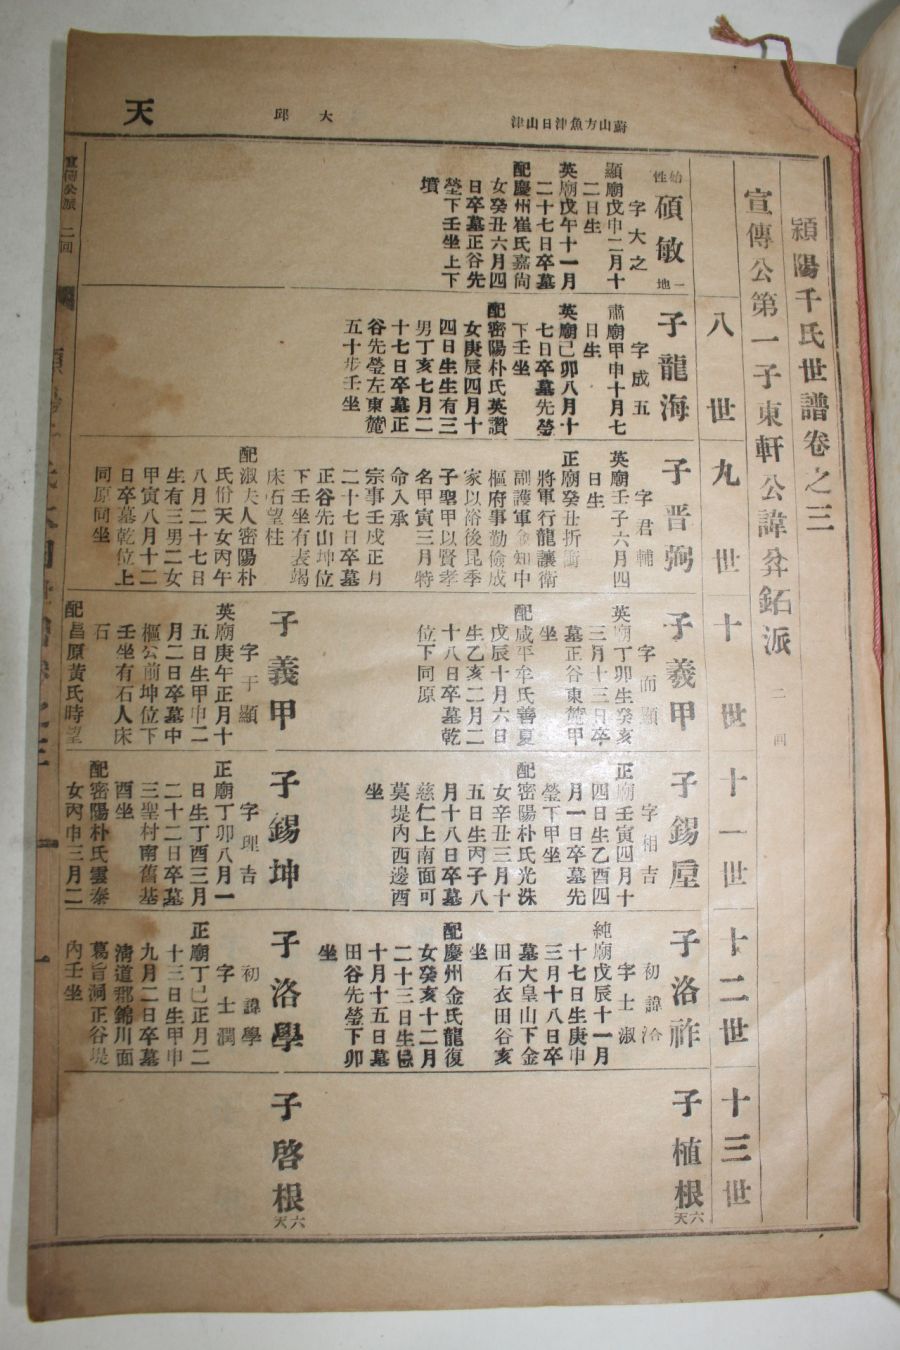 天
大邱
蔚山方魚津日山津
潁陽千氏世譜卷之三
宣傳公第一子東軒公諱弁鉐派 二回
八世
九世
十世
十一世
十二世
十三世
始性
碩敏
一地
字大之
顯廟戊申二月十
二日生
英廟戊午十一月
二十七日卒墓
配慶州崔氏嘉尙
女癸丑六月四
日卒墓正谷先
塋下壬坐上下
墳
子龍海
字成五
肅廟甲申十月七
日生
英廟己卯八月十
七日卒墓先塋
下壬坐
配密陽朴氏英讚
女庚辰四月十
四日生生有三
男丁亥七月二
十七日卒墓正
谷先塋左東麓
五十步壬坐
子晋弼
字君輔
英廟壬子六月四
日生
正廟癸丑折衝
將軍行龍驤衛
副護軍僉知中
樞府事勤儉成
家以裕後昆季
子聖甲以賢孝
名甲寅三月特
命入承
宗事壬戌正月
二十七日卒墓
正谷先山坤位
下壬坐有表碣
床石望柱
配淑夫人密陽朴
氏俗天女丙午
八月二十七日
生有三男二女
甲寅八月十二
日卒墓乾位上
同原同坐
子羲甲
字而顯
英廟丁卯生癸亥
三月十三日卒
墓正谷東麓甲
坐
配咸平牟氏善夏
戊辰十月六日
生乙亥二月二
十八日卒墓乾
位下同原
子義甲
字于顯
英廟庚午正月十
五日生甲申二
月二日卒墓中
樞公前坤位下
壬坐有石人床
石
配昌原黃氏時望
子錫垕
字相吉
正廟壬寅四月十
四日生乙酉四
月一日卒墓先
塋下甲坐
配密陽朴氏光洙
女辛丑三月十
五日生丙子八
月十八日卒墓
慈仁上南面可
莫堤內西邊酉
坐
子錫坤
字理吉
正廟丁卯八月一
日生丁酉三月
二十二日卒墓
三聖村南舊基
酉坐
配密陽朴氏雲泰
女丙申三月二
子洛祚
初諱洽
字士淑
純廟戊辰十一月
十七日生庚申
三月十八日卒
墓大皇山下金
田石衣田谷亥
坐
配慶州金氏龍復
女癸亥十二月
二十三日生忌
十月十五日墓
田谷先塋下卯
坐
子洛學
初諱學
字士潤
正廟丁巳正月二
十三日生甲申
九月二日卒墓
淸道郡錦川面
葛旨洞正谷堤
內壬坐
子植根
六天
子啓根
六天
宣傳公派 二回